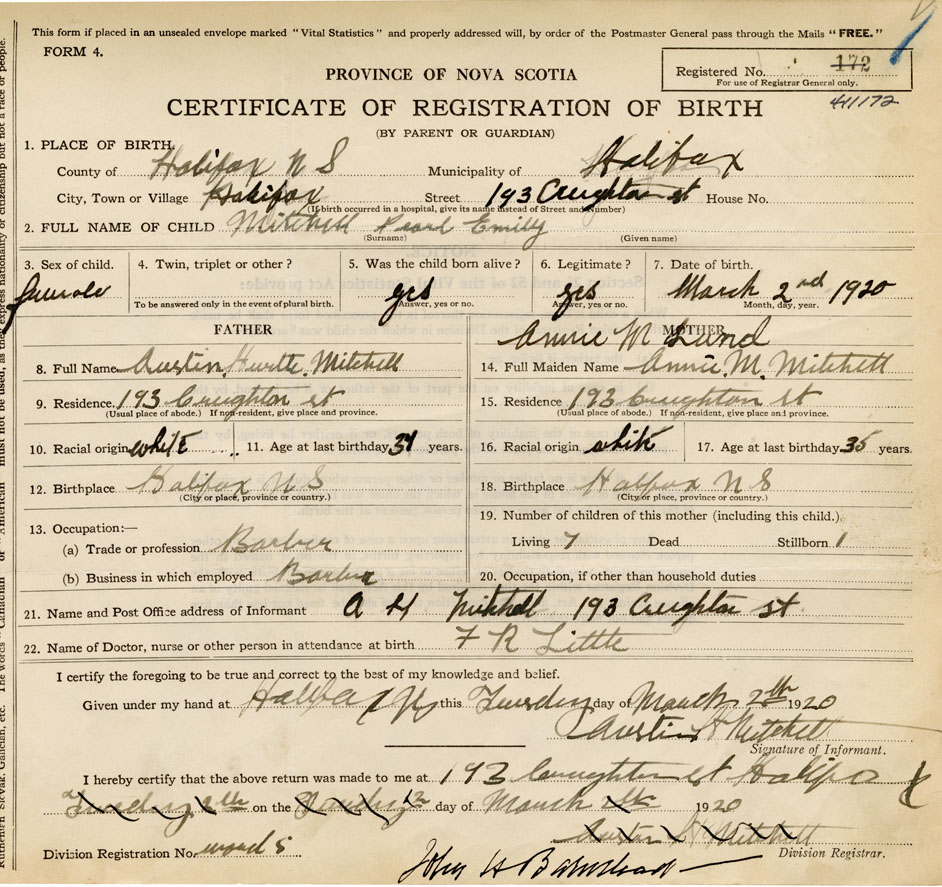 This form if placed in an unsealed envelope marked "Vital Statistics" and properly addressed will, by order of the Postmaster General pass through the Mails "FREE."
FORM 4.
PROVINCE OF NOVA SCOTIA
Registered No. 172
For use of Registrar General only.
411172
CERTIFICATE OF REGISTRATION OF BIRTH
(BY PARENT OR GUARDIAN)
1. PLACE OF BIRTH,
County of Halifax N S Municipality of Halifax
City, Town or Village Halifax Street 193 Creighton st House No.
(If birth occurred in a hospital, give its name instead of Street and Number)
2. FULL NAME OF CHILD Mitchell Pearl Emily
(Surname) (Given name)
3. Sex of child. 4. Twin, triplet or other? 5. Was the child born alive? 6. Legitimate? 7. Date of birth.
yes yes March 2nd 1920
To be answered only in the event of plural birth. Answer, yes or no. Answer, yes or no. Month, day, year.
FATHER MOTHER
Annie M Lund
8. Full Name Austin Mitchell 14. Full Maiden Name Annie. M. Mitchell
9. Residence. 193 Creighton st 15. Residence 193 Creighton st
(Usual place of abode.) If non-resident, give place and province. (Usual place of abode.) If non-resident, give place and province.
10. Racial origin white 11. Age at last birthday years. 16. Racial origin white 17. Age at last birthday 35 years.
12. Birthplace Halifax N S 18. Birthplace Halifax N S
(City or place, province or country.) (City or place, province or country.)
13. Occupation:— 19. Number of children of this mother (including this child.)
(a) Trade or profession Barber Living 7 Dead Stillborn 1
(b) Business in which employed Barber 20. Occupation, if other than household duties
21. Name and Post Office address of Informant A H Mitchell 193 Creighton st
22. Name of Doctor, nurse or other person in attendance at birth F R Little
I certify the foregoing to be true and correct to the best of my knowledge and belief.
Given under my hand at Halifax this Tuesday day of March 2th 1920
Austin H Mitchell
Signature of Informant.
I hereby certify that the above return was made to me at 193 Creighton st Halifax
on the day of March 1920
Austin H Mitchell
Division Registration No. ward 5 Division Registrar.
John A Barnstead